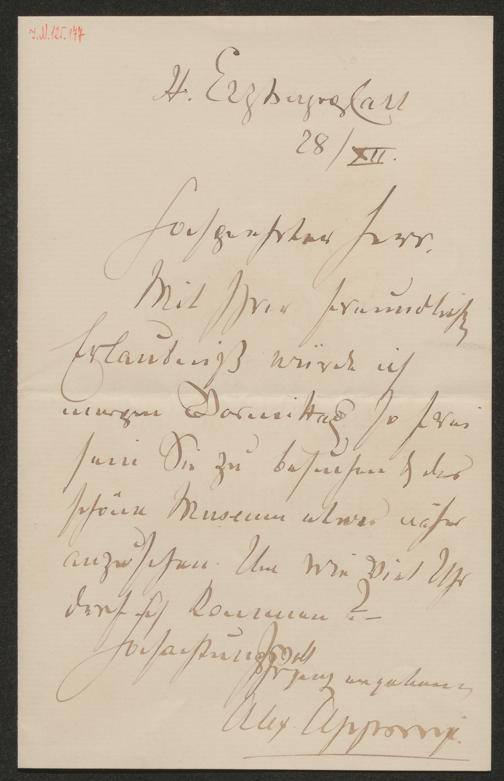 I.N. 125.177
H. Erzherzog Carl
28/XII.
Hochgeehrter Herr,
Mit Ihrer freundlichen
Erlaubniß würde ich
morgen Vormittag so frei
sein Sie zu besuchen & das
schöne Museum etwas näher
anzusehen. Um wie viel Uhr
darf ich kommen?–
Hochachtungsvoll
Ihr ganz ergebener
Alex. Apponyi.